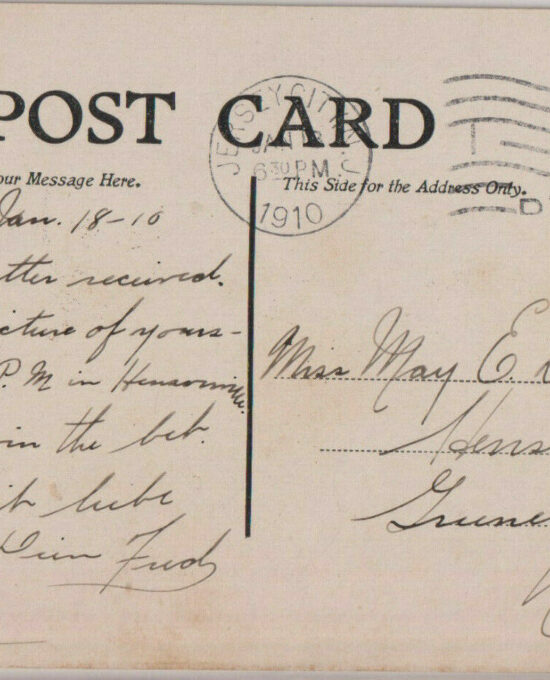 POST CARD
JERSEY CITY, N.J.
JAN 18
6 30 PM
1910
our Message Here.
This Side for the Address Only.
Jan. 18-10
tter received.
cture of yours-
P.M in Hensonville.
in the bet.
it liebe
Dein Fred
Miss May E.
Hens
Greene
D